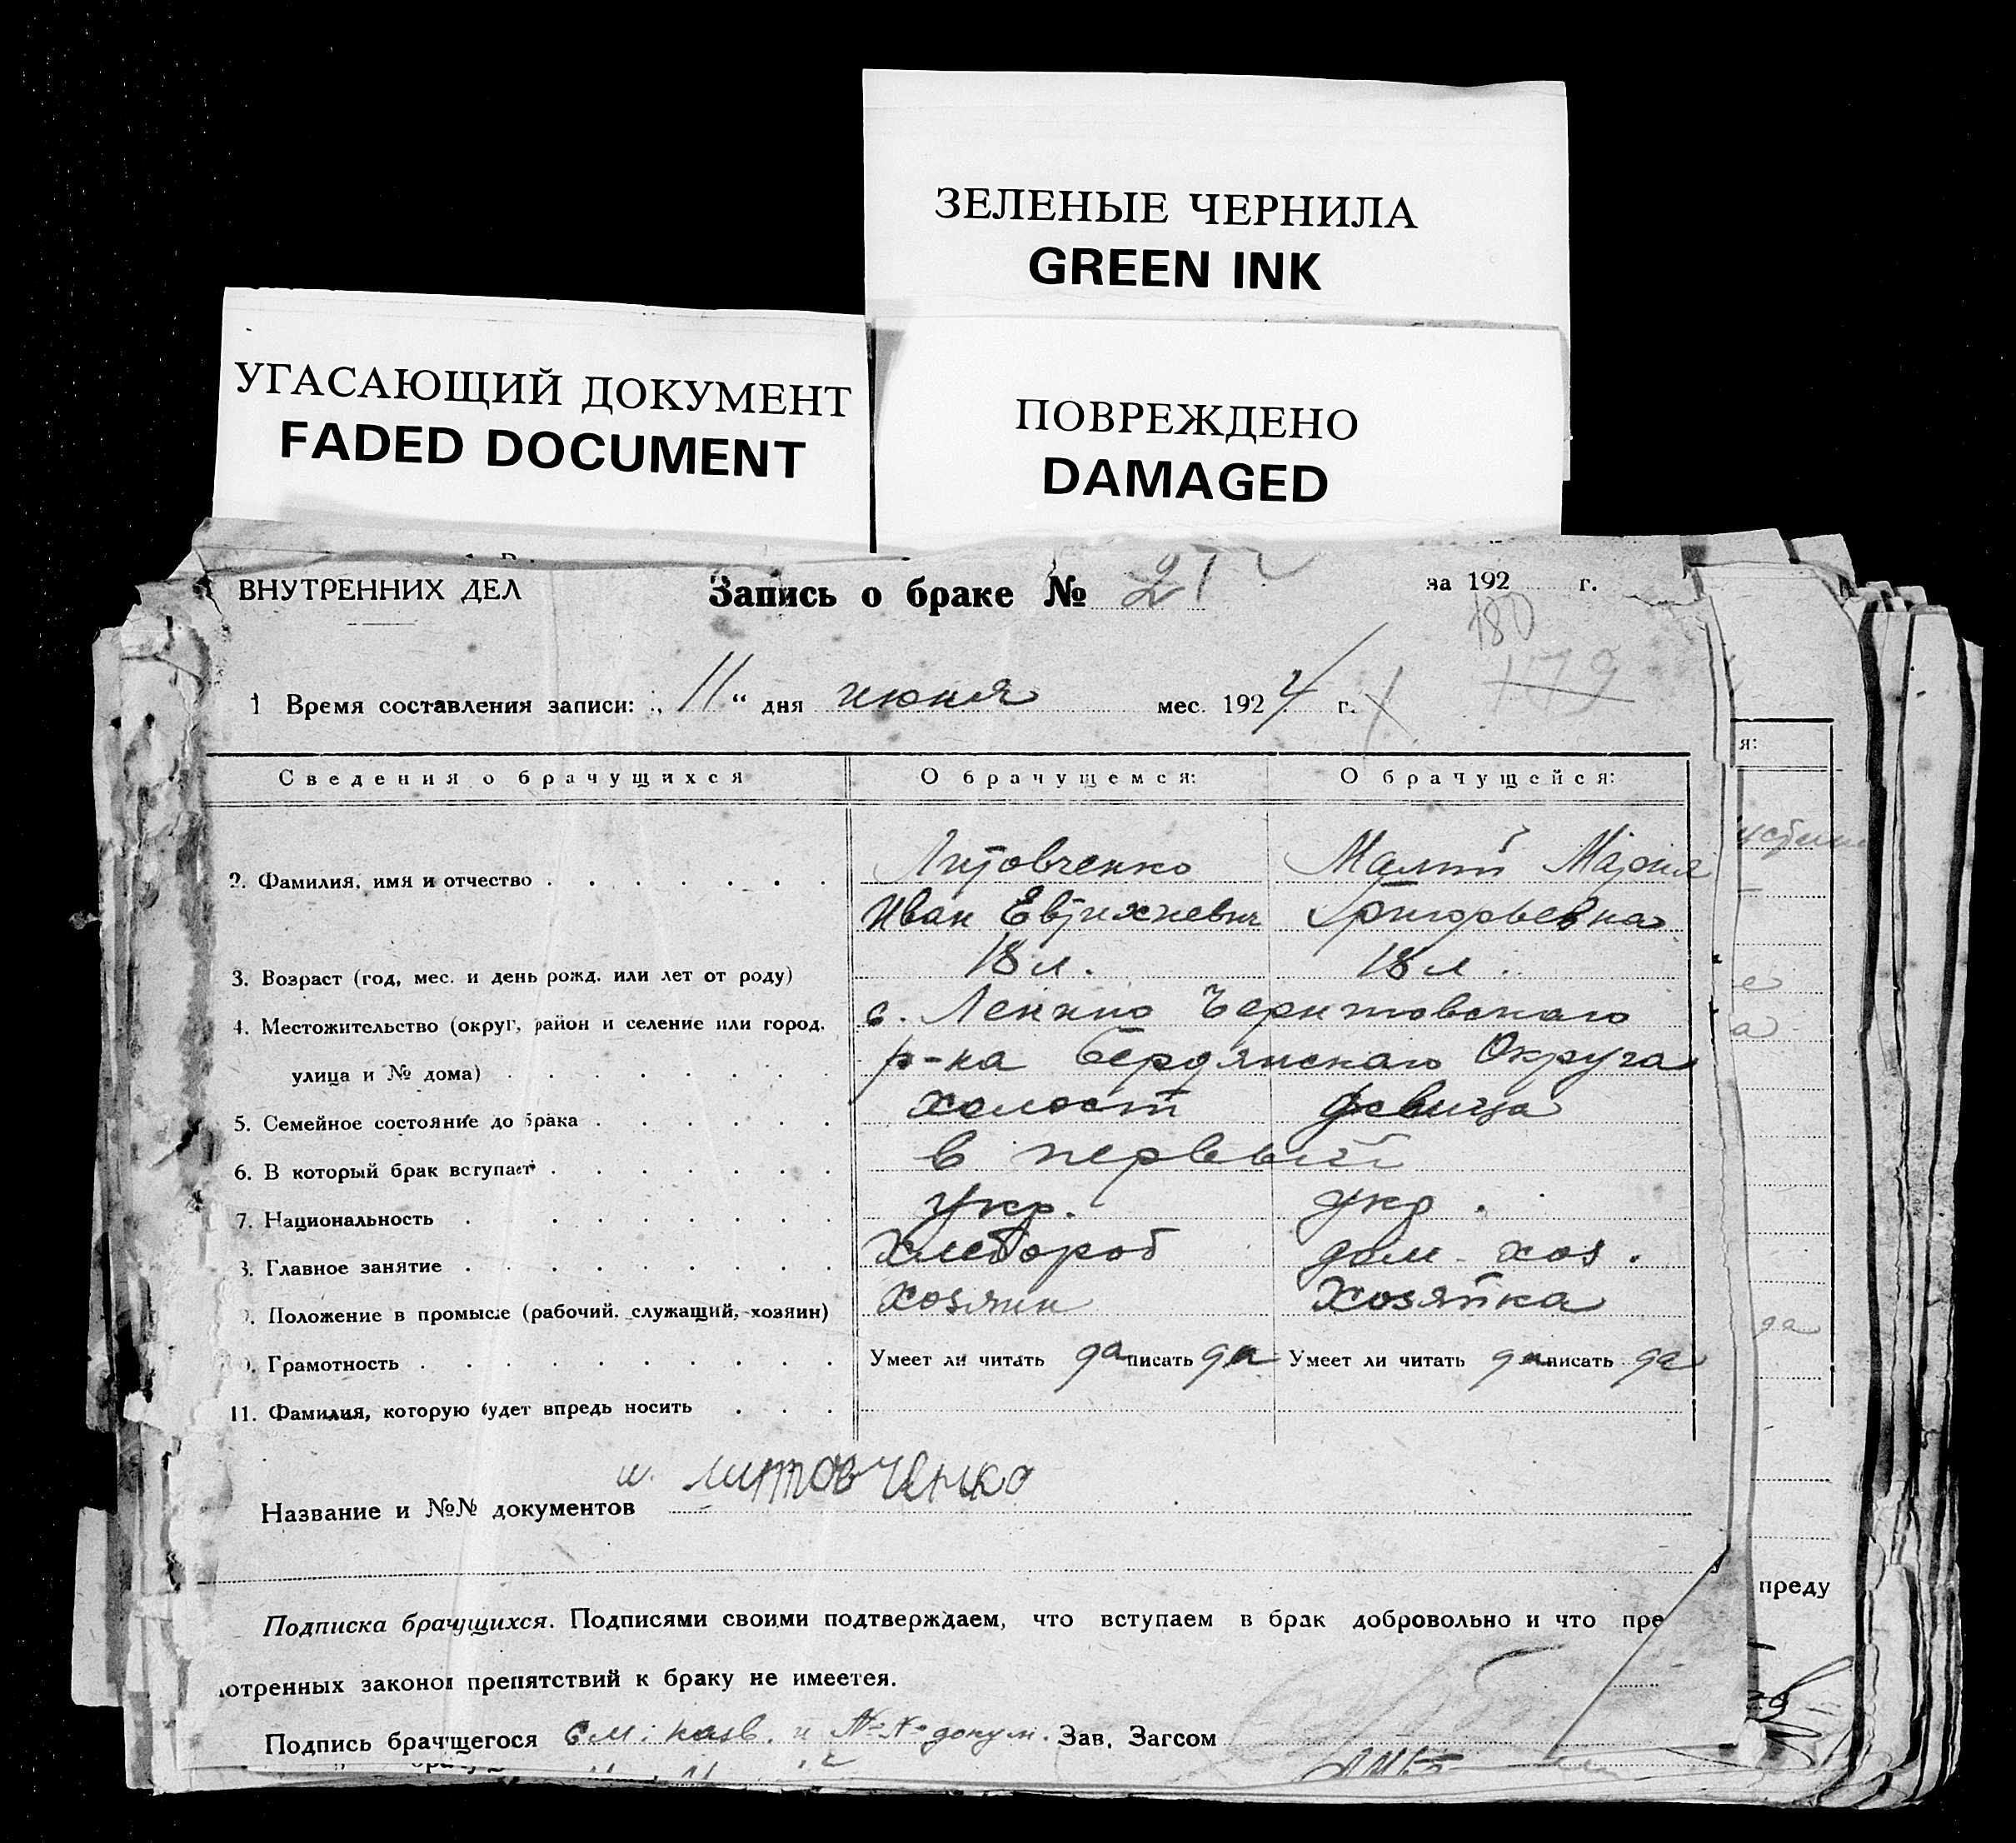 ЗЕЛЕНЫЕ ЧЕРНИЛА
GREEN INK
УГАСАЮЩИЙ ДОКУМЕНТ
FADED DOCUMENT
ПОВРЕЖДЕНО
DAMAGED
ВНУТРЕННИХ ДЕЛ
Запись о браке № за 192 г.
180
179
1 Время составления записи: „ 11 “ дня июня мес. 1924 г.
Сведения о брачущихся О брачущемся: О брачущейся:
2. Фамилия, имя и отчество Литовченко Малий Мария
Иван Евтихиевич Григорьевна
3. Возраст (год, мес. и день рожд. или лет от роду) 18 л. 18 л.
4. Местожительство (округ, район и селение или город, с. Ленино Черниговскаго
улица и № дома) р-на Бердянскаго Округа
5. Семейное состояние до брака холост девица
6. В который брак вступает в первый
7. Национальность укр. укр.
8. Главное занятие хлебороб дом. хоз.
. Положение в промысле (рабочий, служащий, хозяин) хозяин хозяйка
. Грамотность Умеет ли читать да писать да Умеет ли читать да писать да
11. Фамилия, которую будет впредь носить
и. литовченко
Название и №№ документов
Подписка брачущихся. Подписями своими подтверждаем, что вступаем в брак добровольно и что пре
отренных законом препятствий к браку не имеется.
Подпись брачщегося см. назв. и №№ докум. Зав. Загсом
я:
да
преду